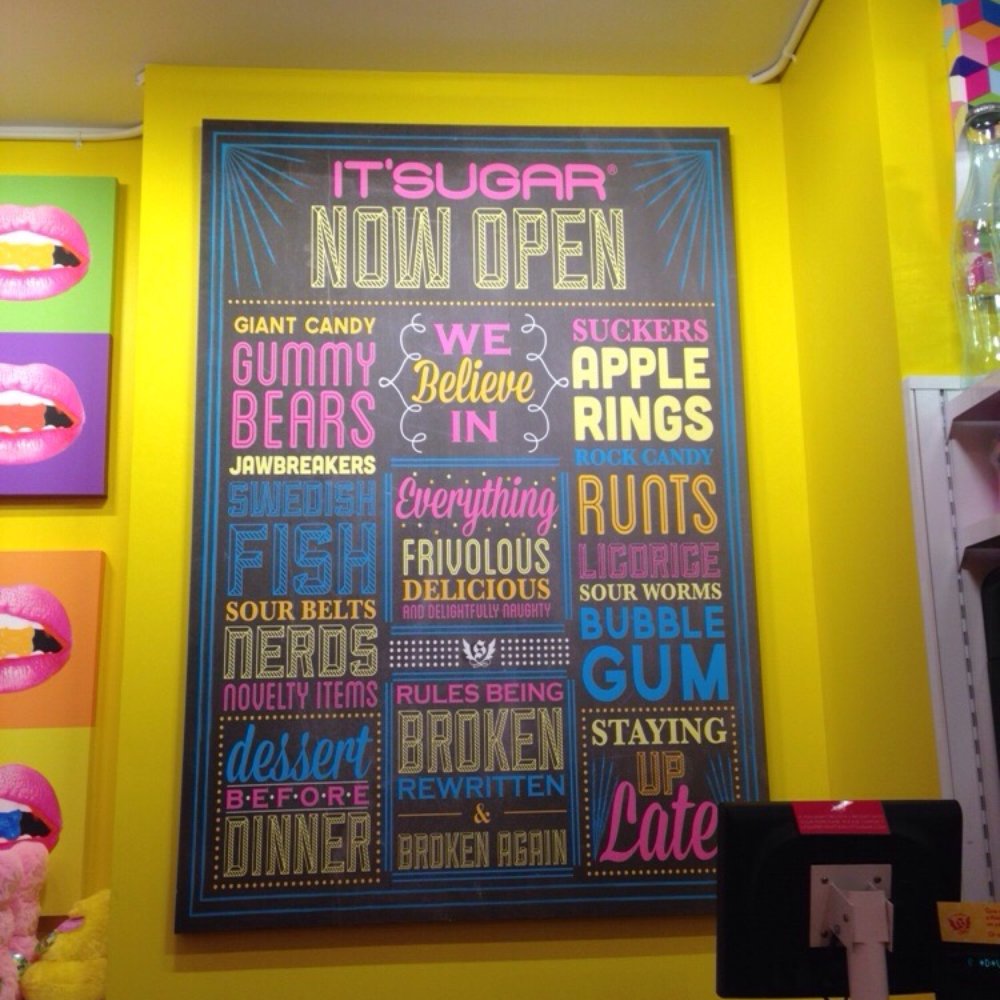 IT'SUGAR®
NOW OPEN
GIANT CANDY
GUMMY
BEARS
JAWBREAKERS
SWEDISH
FISH
SOUR BELTS
NERDS
NOVELTY ITEMS
dessert
B•E•F•O•R•E
DINNER
WE
Believe
IN
Everything
FRIVOLOUS
DELICIOUS
AND DELIGHTFULLY NAUGHTY
S
RULES BEING
BROKEN
REWRITTEN
&
BROKEN AGAIN
SUCKERS
APPLE
RINGS
ROCK CANDY
RUNTS
LICORICE
SOUR WORMS
BUBBLE
GUM
STAYING
UP
Late